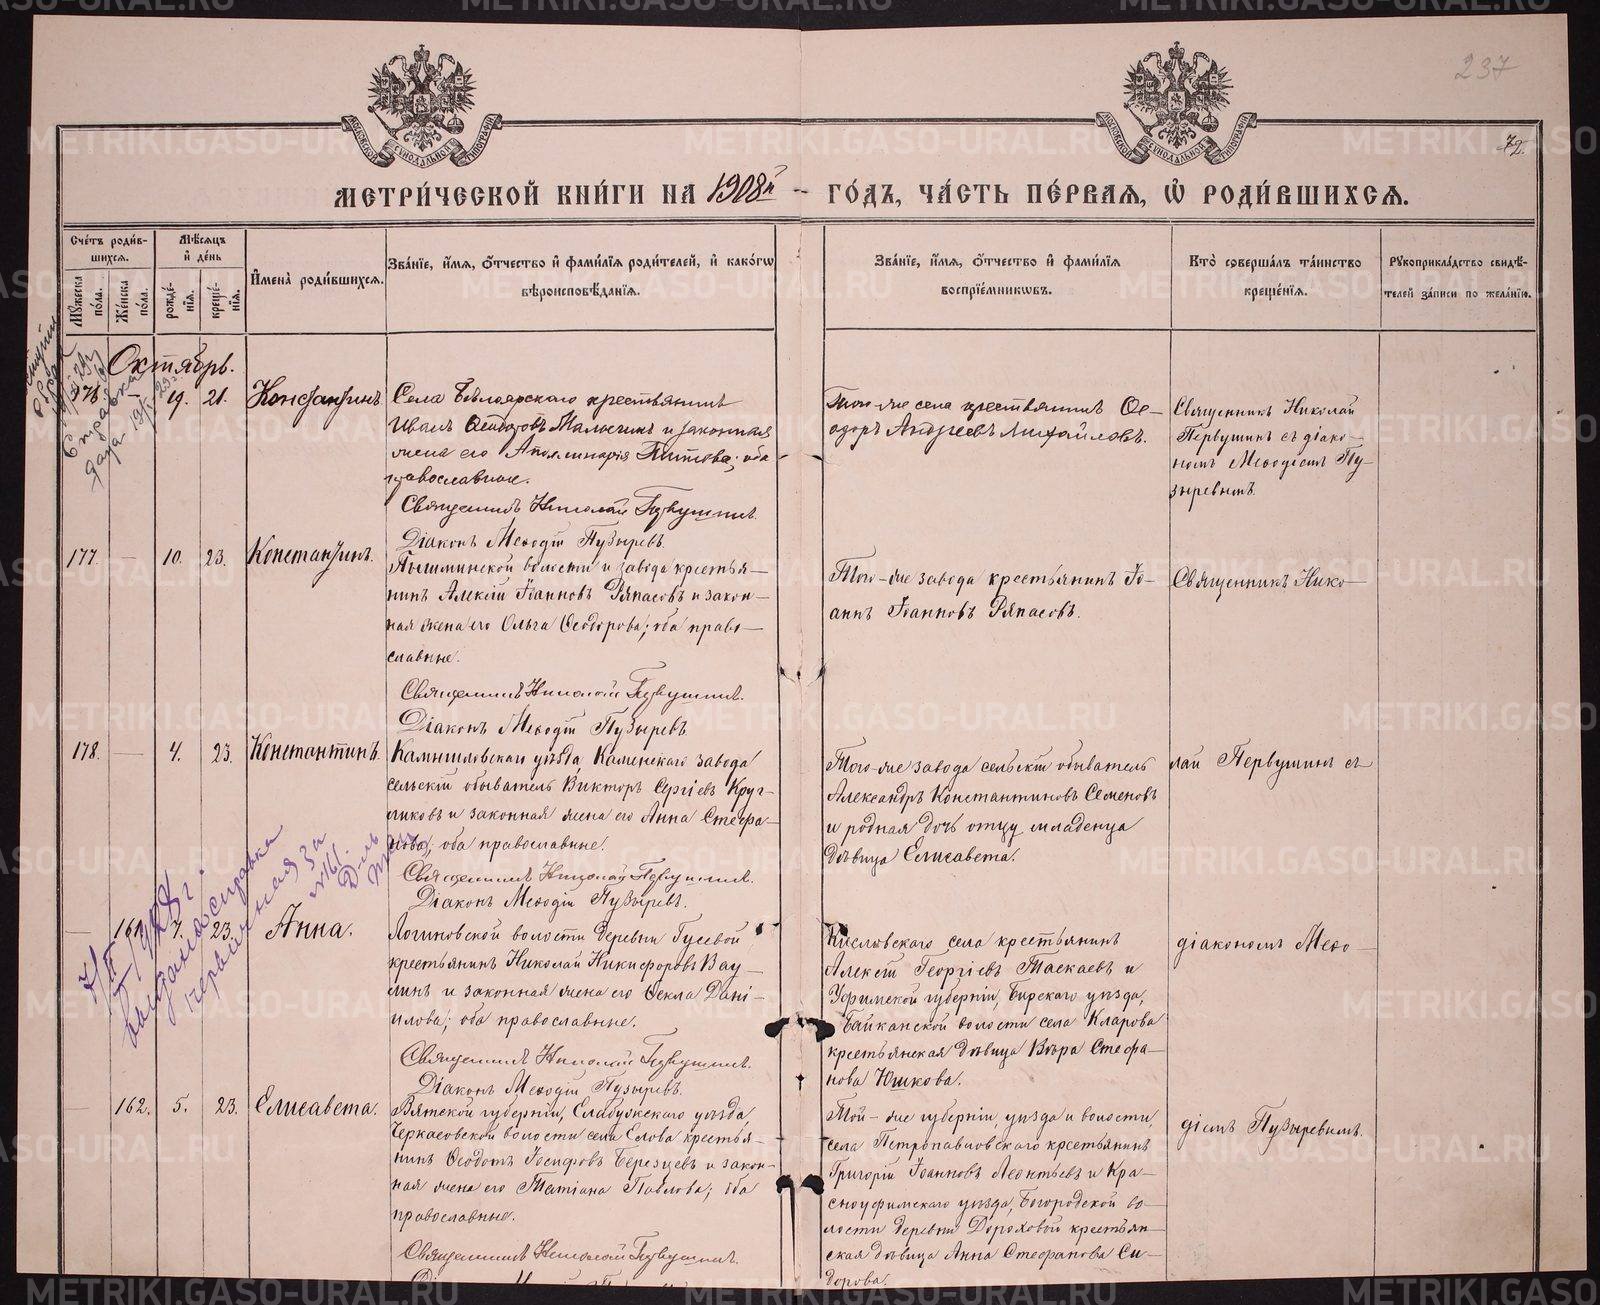 237
72.
МЕТРИ́ЧЕСКОЙ КНИ́ГИ НА 1908й ГО́ДЪ, ЧА́СТЬ ПЕ́РВАЯ, Ѡ҆ РОДИ́ВШИХСЯ.
Сче́тъ роди́в-
шихся.
Му́жеска
по́ла.
Же́нска
по́ла.
Мѣ́сяцъ
и҆ де́нь
рожде́-
нїя.
креще́-
нїя.
И҆мена̀ роди́вшихся.
Зва́нїе, и҆́мя, ѻ҆́тчество и҆ фами́лїя роди́телей, и҆ како́гѡ
вѣроисповѣ́данїя.
Зва́нїе, и҆́мя, ѻ҆́тчество и҆ фами́лїя
воспрїе́мникѡвъ.
Кто̀ соверша́лъ та́инство
креще́нїя.
Рукоприкла́дство свидѣ́-
телей за́писи по жела́нїю.
Октябрь.
176 19. 21. Константинъ
Села Бѣлоярскаго крестьянинъ
Иванъ Ѳеодоровъ Малыгинъ и законная
жена его Аполлинарія Титова; оба
православные.
Священникъ Николай Первушинъ.
Діаконъ Меѳодій Пузыревъ.
Того-же села крестьянинъ Ѳе-
одоръ Андреевъ Михайловъ.
Священникъ Николай
Первушинъ съ діако-
номъ Меѳодіемъ Пу-
зыревымъ.
177. — 10. 23. Константинъ.
Пышминской волости и завода крестья-
нинъ Алексій Іоанновъ Ряпасовъ и закон-
ная жена его Ольга Ѳеодорова; оба право-
славные.
Священникъ Николай Первушинъ.
Діаконъ Меѳодій Пузыревъ
Того-же завода крестьянинъ Іо-
аннъ Іоанновъ Ряпасовъ.
Священникъ Нико-
178. — 4. 23. Константинъ.
Камышловскаго уѣзда, Каменскаго завода
сельскій обыватель Викторъ Сергіевъ Круг-
ликовъ и законная жена его Анна Стефа-
нова; оба православные.
Священникъ Николай Первушинъ.
Діаконъ Меѳодій Пузыревъ.
Того-же завода сельскій обыватель
Александръ Константиновъ Семеновъ
и родная дочь отцу младенца
дѣвица Елисавета.
лай Первушинъ съ
— 161. 7. 23. Анна.
Логиновской волости деревни Гусевой
крестьянинъ Николай Никифоровъ Вау-
линъ и законная жена его Ѳекла Дані-
илова; оба православные.
Священникъ Николай Первушинъ.
Діаконъ Меѳодій Пузыревъ.
Кисловского села крестьянинъ
Алексій Георгіевъ Таскаевъ и
Уфимской губерніи, Бирскаго уѣзда,
Байканской волости села Кларова
крестьянская дѣвица Вѣра Стефа-
нова Юшкова.
діакономъ Меѳо-
— 162. 5. 23. Елисавета.
Вятской губерніи, Елабужскаго уѣзда,
Черкасовской волости села Елова крестья-
нинъ Ѳеодотъ Іосифовъ Березцевъ и закон-
ная жена его Татіана Павлова; оба
православные.
Священникъ Николай Первушинъ.
Той-же губерніи, уѣзда и волости,
села Петропавловскаго крестьянинъ
Григорій Іоанновъ Леонтьевъ и Кра-
сноуфимскаго уѣзда, Богородской во-
лости деревни Дороховой крестьян-
ская дѣвица Анна Стефанова Си-
дорова.
діемъ Пузыревымъ.
выдана справка
первичная за
№61.
METRIKI.GASO-URAL.RU